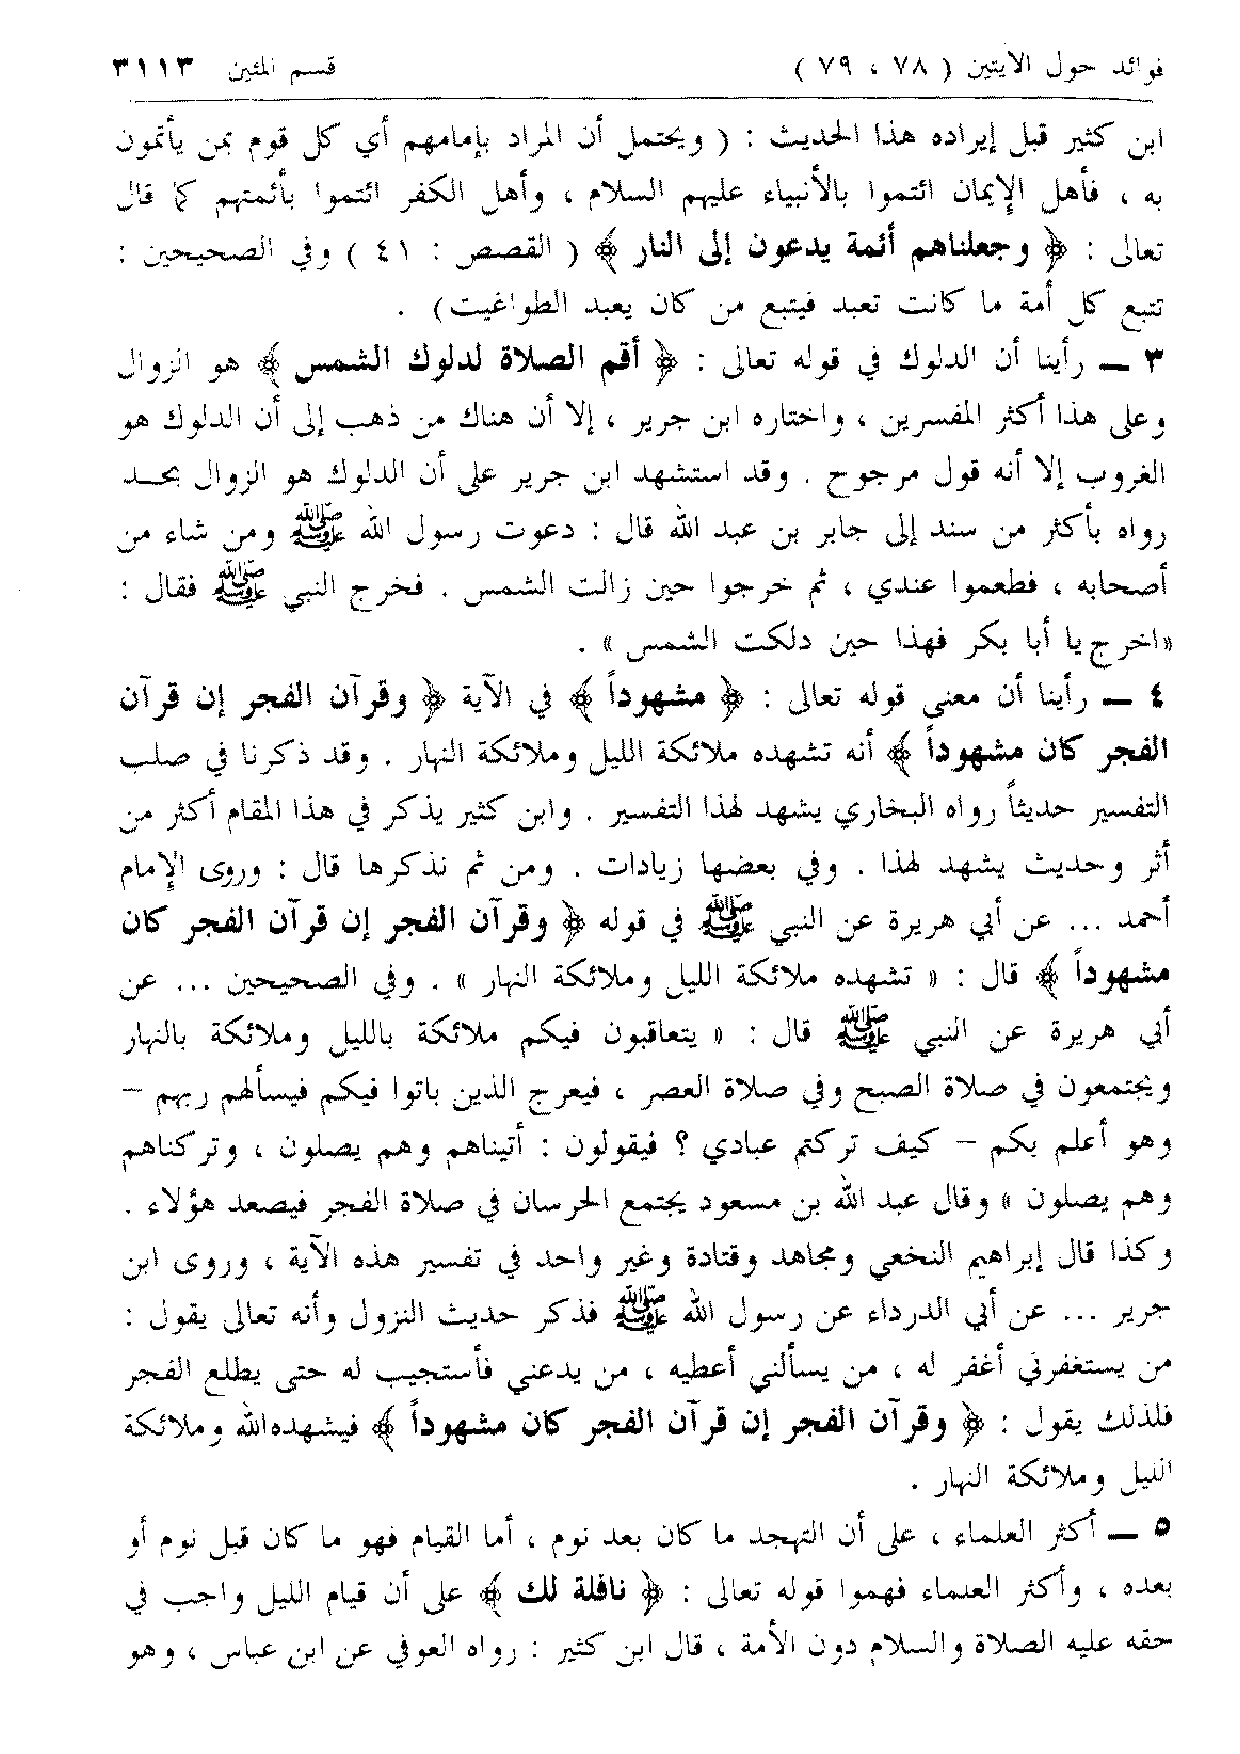 فوائد حول الآيتين ( ٧٨ ، ٧٩ ) قسم المئين ٣١١٣
ابن كثير قبل إيراده هذا الحديث : ( ويحتمل أن المراد بإمامهم أي كل قوم بمن يأتمون
به ، فأهل الإيمان ائتموا بالأنبياء عليهم السلام ، وأهل الكفر ائتموا بأئمتهم كما قال
تعالى : ﴿ وجعلناهم أئمة يدعون إلى النار ﴾ ( القصص : ٤١ ) وفي الصحيحين :
تتبع كل أمة ما كانت تعبد فيتبع من كان يعبد الطواغيت) .
٣ — رأينا أن الدلوك في قوله تعالى : ﴿ أقم الصلاة لدلوك الشمس ﴾ هو الزوال
وعلى هذا أكثر المفسرين ، واختاره ابن جرير ، إلا أن هناك من ذهب إلى أن الدلوك هو
الغروب إلا أنه قول مرجوح . وقد استشهد ابن جرير على أن الدلوك هو الزوال بحـد
رواه بأكثر من سند إلى جابر بن عبد الله قال : دعوت رسول الله ﷺ ومن شاء من
أصحابه ، فطعموا عندي ، ثم خرجوا حين زالت الشمس . فخرج النبي ﷺ فقال :
«اخرج يا أبا بكر فهذا حين دلكت الشمس » .
٤ — رأينا أن معنى قوله تعالى : ﴿ مشهوداً ﴾ في الآية ﴿ وقرآن الفجر إن قرآن
الفجر كان مشهوداً ﴾ أنه تشهده ملائكة الليل وملائكة النهار . وقد ذكرنا في صلب
التفسير حديثاً رواه البخاري يشهد لهذا التفسير . وابن كثير يذكر في هذا المقام أكثر من
أثر وحديث يشهد لهذا . وفي بعضها زيادات . ومن ثم نذكرها قال : وروى الإمام
أحمد ... عن أبي هريرة عن النبي ﷺ في قوله ﴿ وقرآن الفجر إن قرآن الفجر كان
مشهوداً ﴾ قال : « تشهده ملائكة الليل وملائكة النهار » . وفي الصحيحين ... عن
أبي هريرة عن النبي ﷺ قال : « يتعاقبون فيكم ملائكة بالليل وملائكة بالنهار
ويجتمعون في صلاة الصبح وفي صلاة العصر ، فيعرج الذين باتوا فيكم فيسألهم ربهم –
وهو أعلم بكم – كيف تركتم عبادي ؟ فيقولون : أتيناهم وهم يصلون ، وتركناهم
وهم يصلون » وقال عبد الله بن مسعود يجتمع الحرسان في صلاة الفجر فيصعد هؤلاء .
وكذا قال إبراهيم النخعي ومجاهد وقتادة وغير واحد في تفسير هذه الآية ، وروى ابن
جرير ... عن أبي الدرداء عن رسول الله ﷺ فذكر حديث النزول وأنه تعالى يقول :
من يستغفرني أغفر له ، من يسألني أعطيه ، من يدعني فأستجيب له حتى يطلع الفجر
فلذلك يقول : ﴿ وقرآن الفجر إن قرآن الفجر كان مشهوداً ﴾ فيشهده الله وملائكة
الليل وملائكة النهار .
٥ — أكثر العلماء ، على أن التهجد ما كان بعد نوم ، أما القيام فهو ما كان قبل نوم أو
بعده ، وأكثر العلماء فهموا قوله تعالى : ﴿ نافلة لك ﴾ على أن قيام الليل واجب في
حقه عليه الصلاة والسلام دون الأمة ، قال ابن كثير : رواه العوفي عن ابن عباس ، وهو